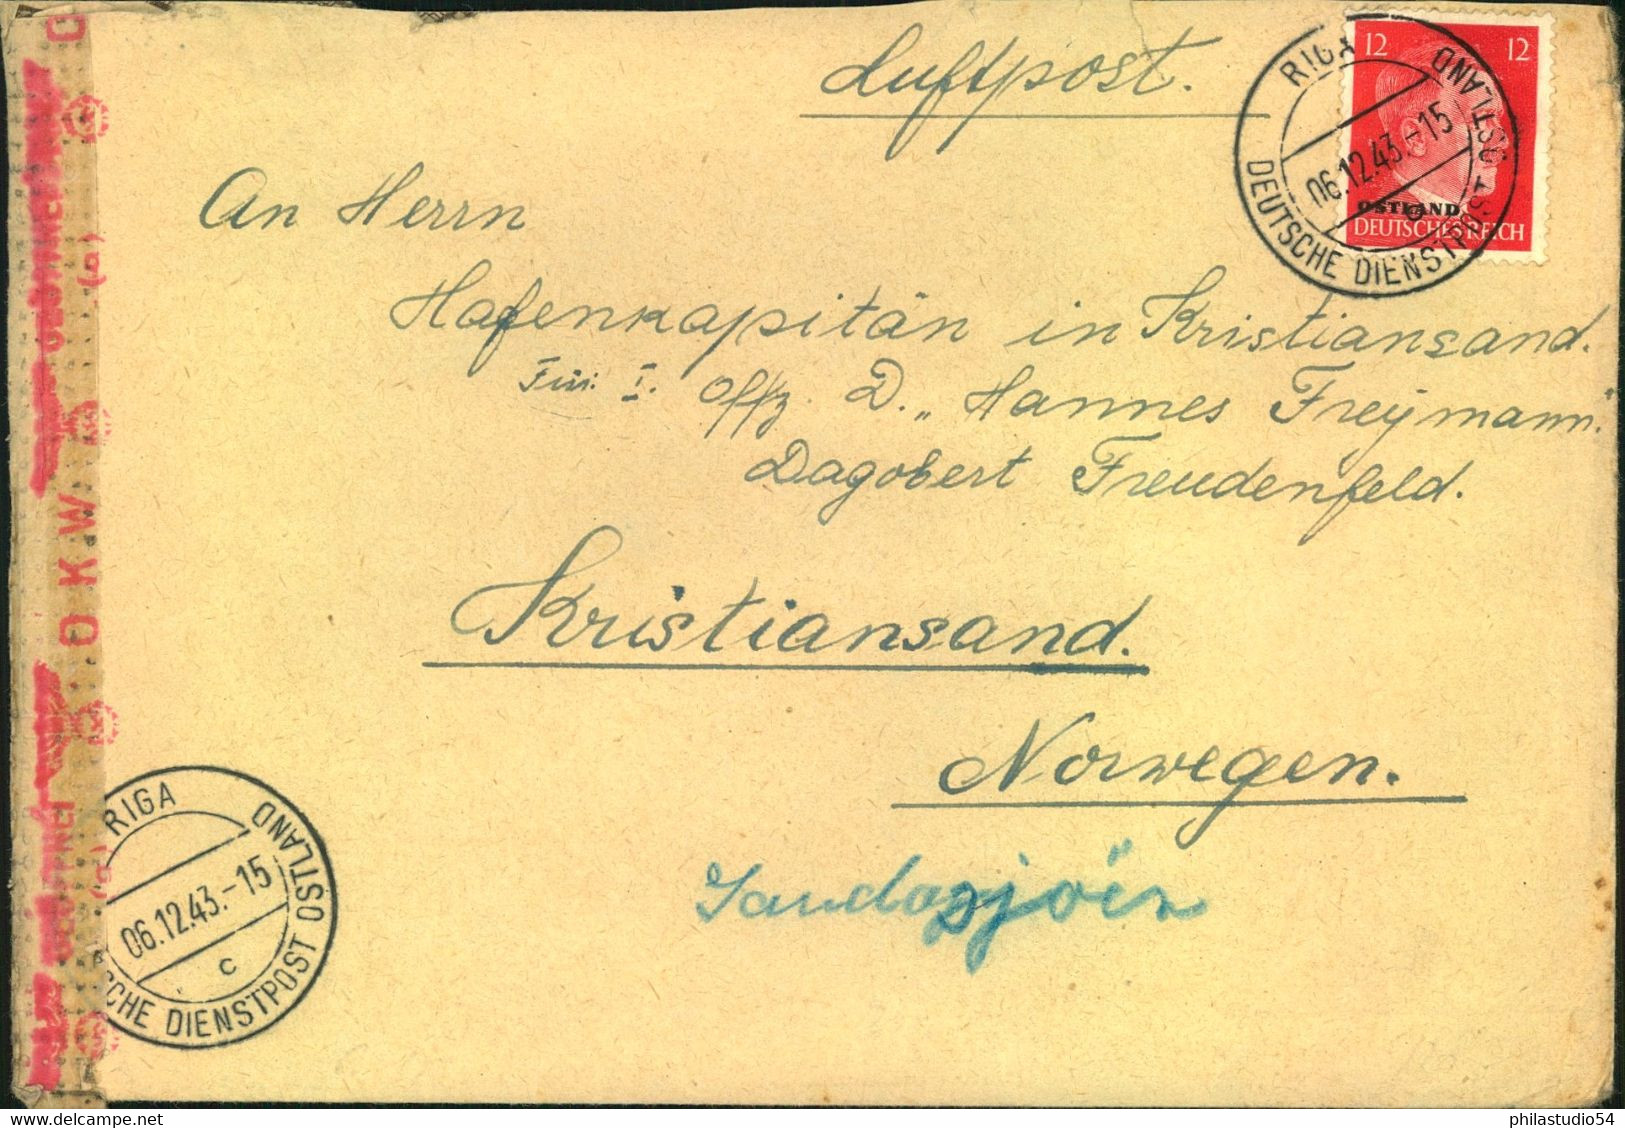 Luftpost.
12 12
OSTLAND
DEUTSCHES REICH
RIGA
DEUTSCHE DIENSTPOST OSTLAND
06.12.43.-15
An Herrn
Hafenkapitän in Kristiansand.
Für I. Offz. D. „Hannes Freymann."
Dagobert Freudenfeld.
Kristiansand.
Norwegen.
OKW
RIGA
SCHE DIENSTPOST OSTLAND
06.12.43.-15
c
philastudio54